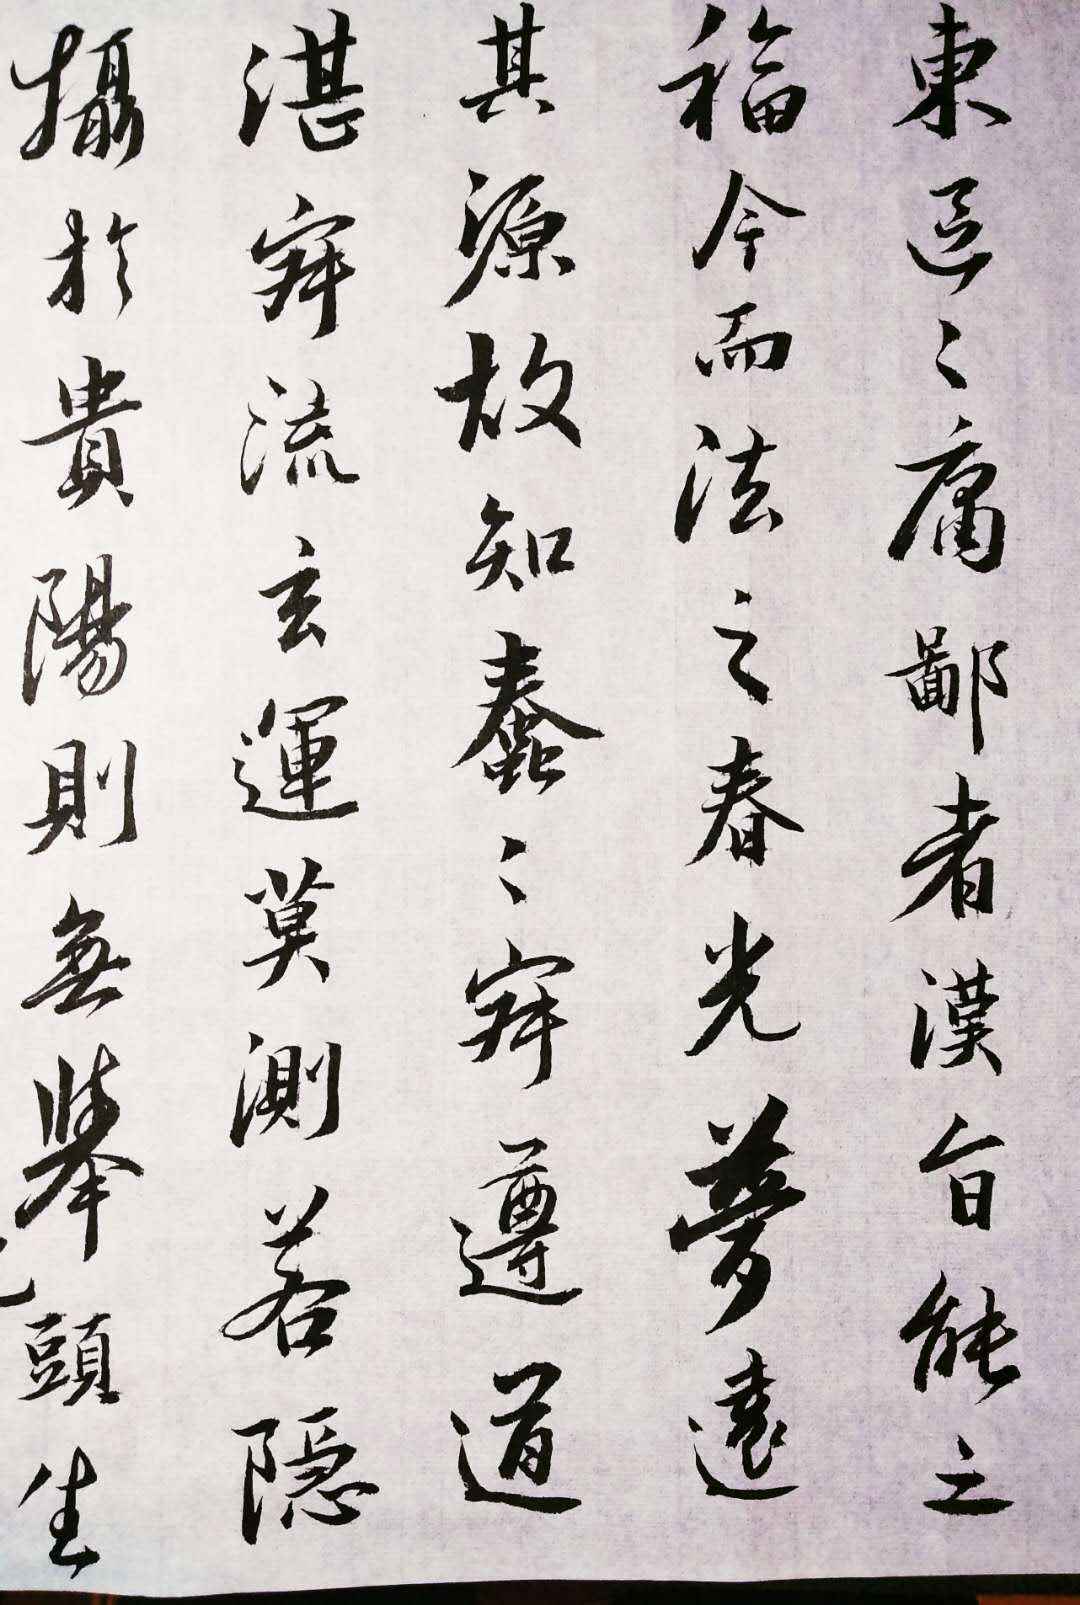 東區〻庸鄙者漢旨能之
福今而法之春光夢遠
其源故知蠢〻寂遵道
湛寂流玄運莫測若隱
攝於貴陽則無舉頭生